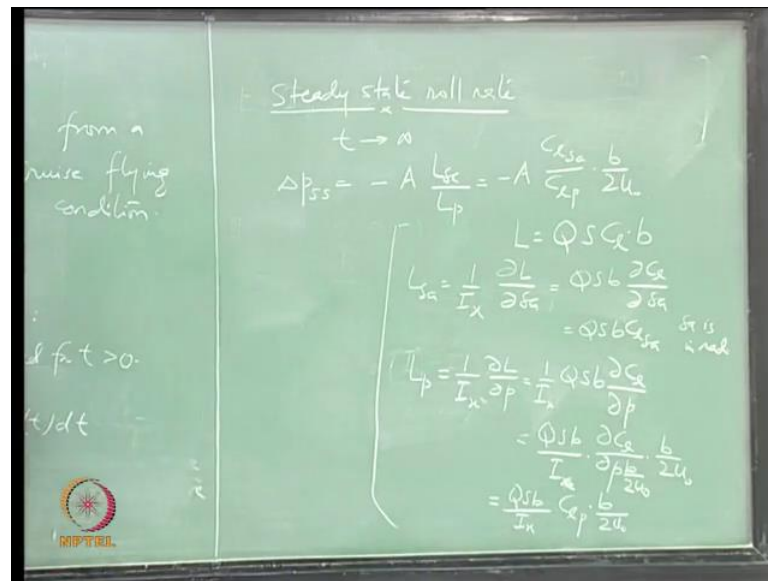 from a
cruise flying
condition.
d for t > 0.
(t)/dt
Steady state roll rate
t → ∞
Δp_ss = - A L_δa / L_p = - A C_lδa / C_lp · b / 2u₀
L = Q S C_l · b
L_δa = 1/I_x ∂L/∂δa = Q S b ∂C_l/∂δa
= Q S b C_lδa δa is in rad
L_p = 1/I_x ∂L/∂p = 1/I_x Q S b ∂C_l/∂p
= QSb/I_x · ∂C_l/∂(pb/2u₀) · b/2u₀
= QSb/I_x C_lp · b/2u₀
NPTEL